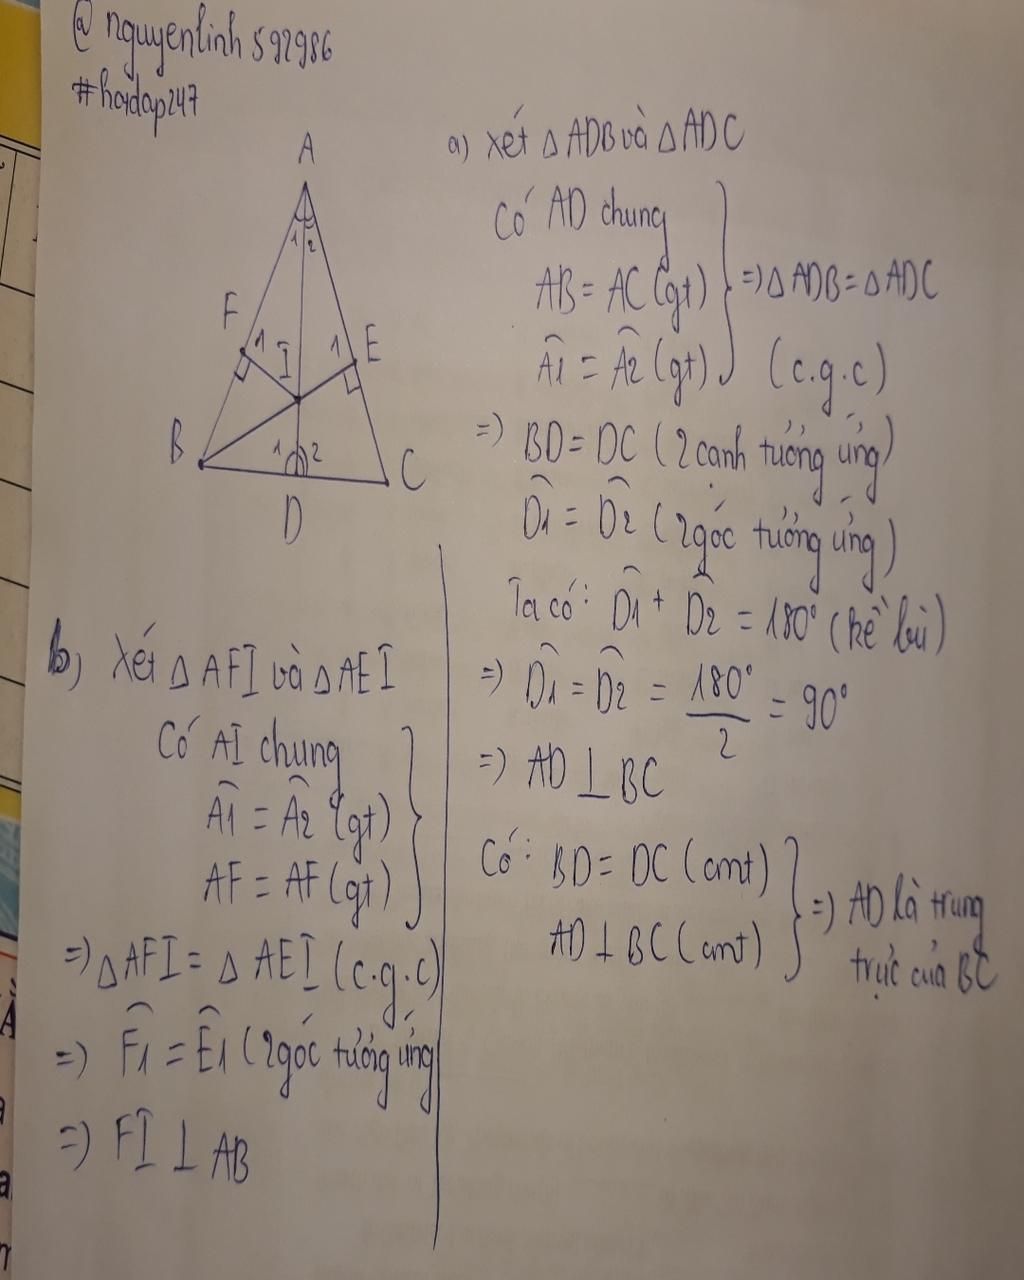 @ nguyenlinh592986
#hoidap247
A
1 2
F 1 I 1 E
B 1 2 C
D
a) Xét △ADB và △ADC
Có AD chung
AB = AC (gt)
Â1 = Â2 (gt)
=> △ADB = △ADC
(c.g.c)
=> BD = DC (2 cạnh tương ứng)
D̂1 = D̂2 (2 góc tương ứng)
Ta có: D̂1 + D̂2 = 180° (kề bù)
=> D̂1 = D̂2 = 180°/2 = 90°
=> AD ⊥ BC
Có: BD = DC (cmt)
AD ⊥ BC (cmt)
=> AD là trung
trực của BC
b) Xét △AFI và △AEI
Có AI chung
Â1 = Â2 (gt)
AF = AF (gt)
=> △AFI = △AEI (c.g.c)
=> F̂1 = Ê1 (2 góc tương ứng
=> FI ⊥ AB